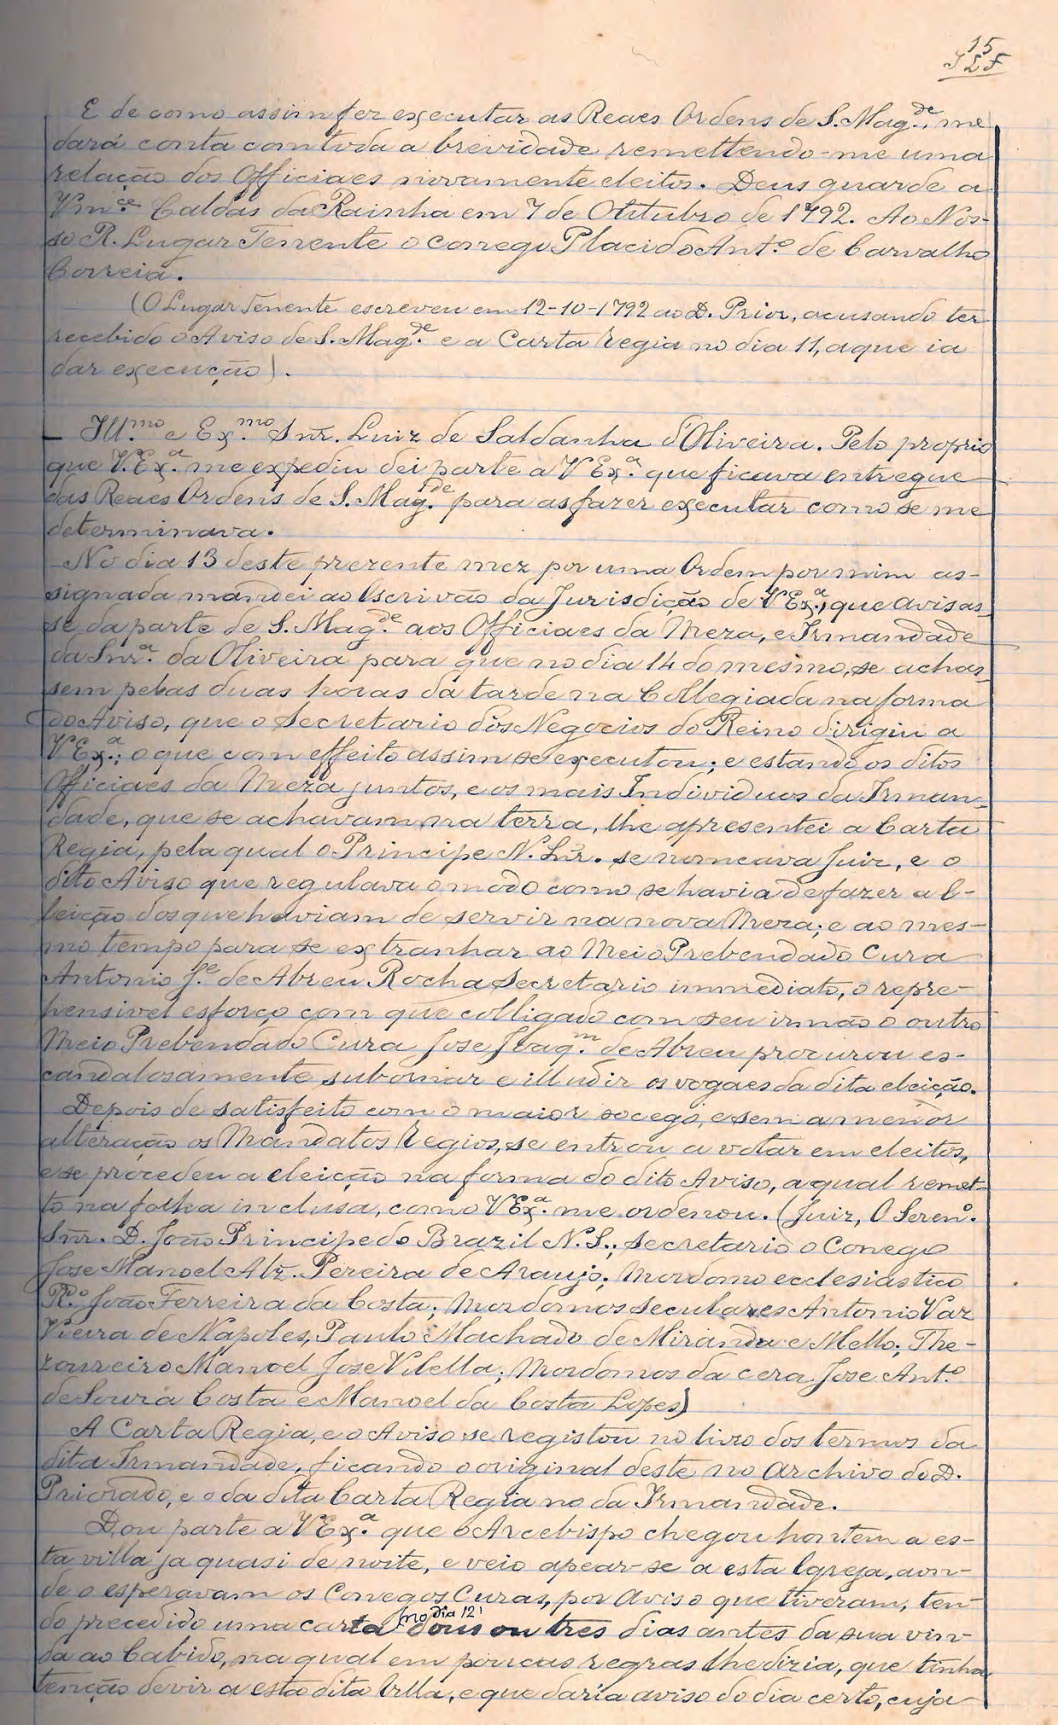 15
E de como assim fez executar as Reaes Ordens de S. Mag.de, me
dará conta com toda a brevidade remettendo-me uma
relação dos Officiaes novamente eleitos. Deus guarde a
Vm.ce Caldas da Rainha em 7 de Outubro de 1792. Ao Nos-
so R. Lugar Tenente o conego Placido Ant.o de Carvalho
Correia.
(O Lugar Tenente escreveu em 12-10-1792 ao D. Prior, acusando ter
recebido o Aviso de S. Mag.de e a Carta Regia no dia 11, a que ia
dar execução).
Ill.mo e Ex.mo Snr. Luiz de Saldanha d'Oliveira. Pelo proprio
que V. Ex.a me expediu dei parte a V Ex.a que ficava entregue
das Reaes Ordens de S. Mag.de para as fazer executar como se me
determinava.
No dia 13 deste prezente mez por uma Ordem por mim as-
signada mandei ao Escrivão da Jurisdição de V Ex.a, que avisas-
se da parte de S. Mag.de aos Officiaes da Meza, e Irmandade
da Snr.a da Oliveira para que no dia 14 do mesmo, se achas-
sem pelas duas horas da tarde na Collegiada na forma
do Aviso, que o Secretario dos Negocios do Reino dirigiu a
V Ex.a; o que com effeito assim se executou; e estando os ditos
Officiaes da Meza juntos, e os mais Individuos da Irman-
dade, que se achavam na terra, lhe apresentei a Carta
Regia, pela qual o Principe N. Snr. se nomeava Juiz, e o
dito Aviso que regulava o modo como se havia de fazer a E-
leição dos que haviam de servir na nova Meza; e ao mes-
mo tempo para se extranhar ao Meio Prebendado Cura
Antonio J.e de Abreu Rocha Secretario immediato, o repre-
hensivel esforço com que colligado com seu irmão o outro
Meio Prebendado Cura Jose Joaq.m de Abreu procurou es-
candalosamente subornar e illudir os vogaes da dita eleição.
Depois de satisfeito com o maior socego, e sem a menor
alteração os Mandatos Regios, se entrou a votar em eleitos,
e se procedeu a eleição na forma do dito Aviso, a qual remet-
to na folha inclusa, como V Ex.a me ordenou. (Juiz, O Seren.o
Snr. D. João Principe do Brazil N. S.; Secretario o Conego
Jose Manoel Alz. Pereira de Araujo; Mordomo ecclesiastico
R.o João Ferreira da Costa; Mordomos seculares Antonio Vaz
Vieira de Napoles, Paulo Machado de Miranda e Mello; The-
zoureiro Manoel Jose Vilella; Mordomos da cera Jose Ant.o
de Souza Costa e Manoel da Costa Lopes)
A Carta Regia, e o Aviso se registou no livro dos termos da
dita Irmandade, ficando o original deste no Archivo do D.
Priorado, e o da dita Carta Regia no da Irmandade.
Dou parte a V Ex.a que o Arcebispo chegou hontem a es-
ta villa ja quasi de noite, e veio apear-se a esta Igreja, aon-
de o esperavam os Conegos Curas, por aviso que tiveram, ten-
do precedido uma carta (no dia 12) dous ou tres dias antes da sua vin-
da ao Cabido, na qual em poucas regras lhe dizia, que tinha
tenção de vir a esta dita Villa, e que daria aviso do dia certo, cuja